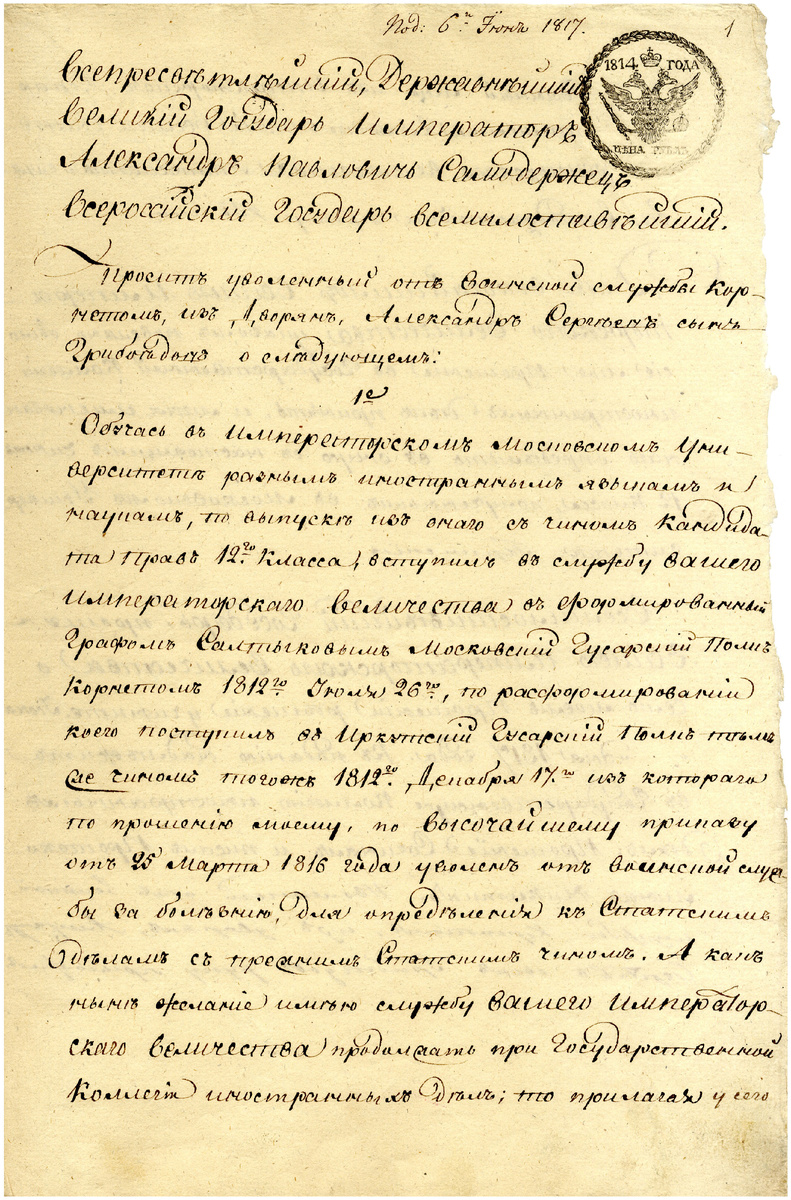 Под: 6го Iюня 1817.
1
1814 ГОДА
ЦѢНА РУБЛЬ
Всепресвѣтлѣйшiй, Державнѣйшiй
Великiй Государь Императоръ
Александръ Павловичь Самодержецъ
Всероссiйскiй Государь всемилостивѣйшiй.
Проситъ уволенный отъ воинской службы Кор-
нетомъ, изъ Дворянъ, Александръ Сергѣевъ сынъ
Грибоѣдовъ о слѣдующемъ:
1е
Обучась въ Императорскомъ Московскомъ Уни-
верситетѣ разнымъ иностраннымъ языкамъ и
наукамъ, по выпускѣ изъ онаго съ чиномъ Кандида-
та Правъ 12го Класса, вступилъ въ службу вашего
Императорскаго Величества въ формированный
Графомъ Салтыковымъ Московскiй Гусарскiй Полкъ
Корнетомъ 1812го Iюля 26го, по расформированiи
коего поступилъ въ Иркутскiй Гусарскiй Полкъ тѣмъ
же чиномъ тогожъ 1812го Декабря 17го изъ котораго
по прошенiю моему, по Высочайшему приказу
отъ 25 Марта 1816 года уволенъ отъ воинской служ-
бы за болѣзнiю, для опредѣленiя къ Статскимъ
дѣламъ съ прежнимъ Статскимъ чиномъ. А какъ
нынѣ желанiе имѣю службу вашего Император-
скаго Величества продолжать при Государственной
Коллегiи иностранныхъ Дѣлъ; то прилагая у сего